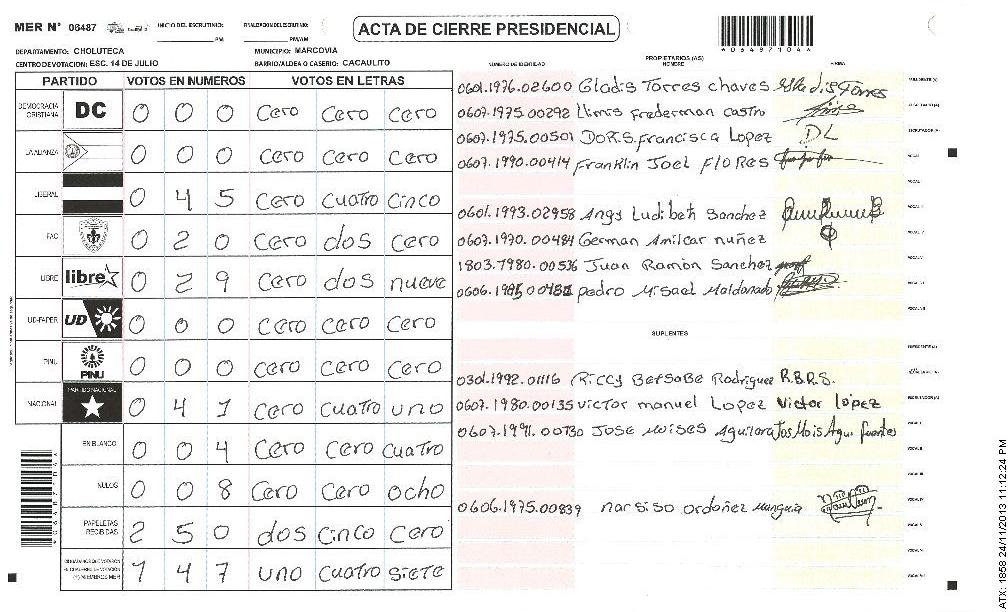 MER N° 06487
INICIO DEL ESCRUTINIO: PM
FINALIZACION DEL ESCRUTINIO: PM/AM
ACTA DE CIERRE PRESIDENCIAL
* 0 6 4 8 7 1 0 4 4 *
DEPARTAMENTO: CHOLUTECA
MUNICIPIO: MARCOVIA
CENTRO DE VOTACION: ESC. 14 DE JULIO
BARRIO/ALDEA O CASERIO: CACAULITO
PARTIDO VOTOS EN NUMEROS VOTOS EN LETRAS
DEMOCRACIA CRISTIANA DC 0 0 0 cero cero cero
LA ALIANZA 0 0 0 cero cero cero
LIBERAL 0 4 5 cero cuatro cinco
FAC 0 2 0 cero dos cero
LIBRE libre 0 2 9 cero dos nueve
UD-FAPER UD 0 0 0 cero cero cero
PINU PINU 0 0 0 cero cero cero
NACIONAL PARTIDO NACIONAL 0 4 1 cero cuatro uno
EN BLANCO 0 0 4 cero cero cuatro
NULOS 0 0 8 cero cero ocho
PAPELETAS RECIBIDAS 2 5 0 dos cinco cero
CIUDADANOS QUE VOTARON 1 4 7 uno cuatro siete
PROPIETARIOS (AS)
NUMERO DE IDENTIDAD NOMBRE FIRMA
0601.1976.02600 Gladis Torres chaves
0607.1975.00292 Frederman castro
0607.1975.00501 DORS. Francisca Lopez DL
0607.1990.00414 Franklin Joel FLORES
0601.1993.02958 Angy Ludibeth Sanchez
0607.1970.00484 German Amilcar nuñez
1803.1980.00536 Juan Ramon Sanchez
pedro Misael Maldonado
SUPLENTES
0301.1992.01116 Riccy Bersabe Rodriguez R.B.R.S.
0607.1980.00135 victor manuel Lopez victor lópez
0607.1991.00730 JOSE moises Aguilar
0606.1975.00839 narsiso ordoñez munguia
ATX: 1858 24/11/2013 11:12:24 PM